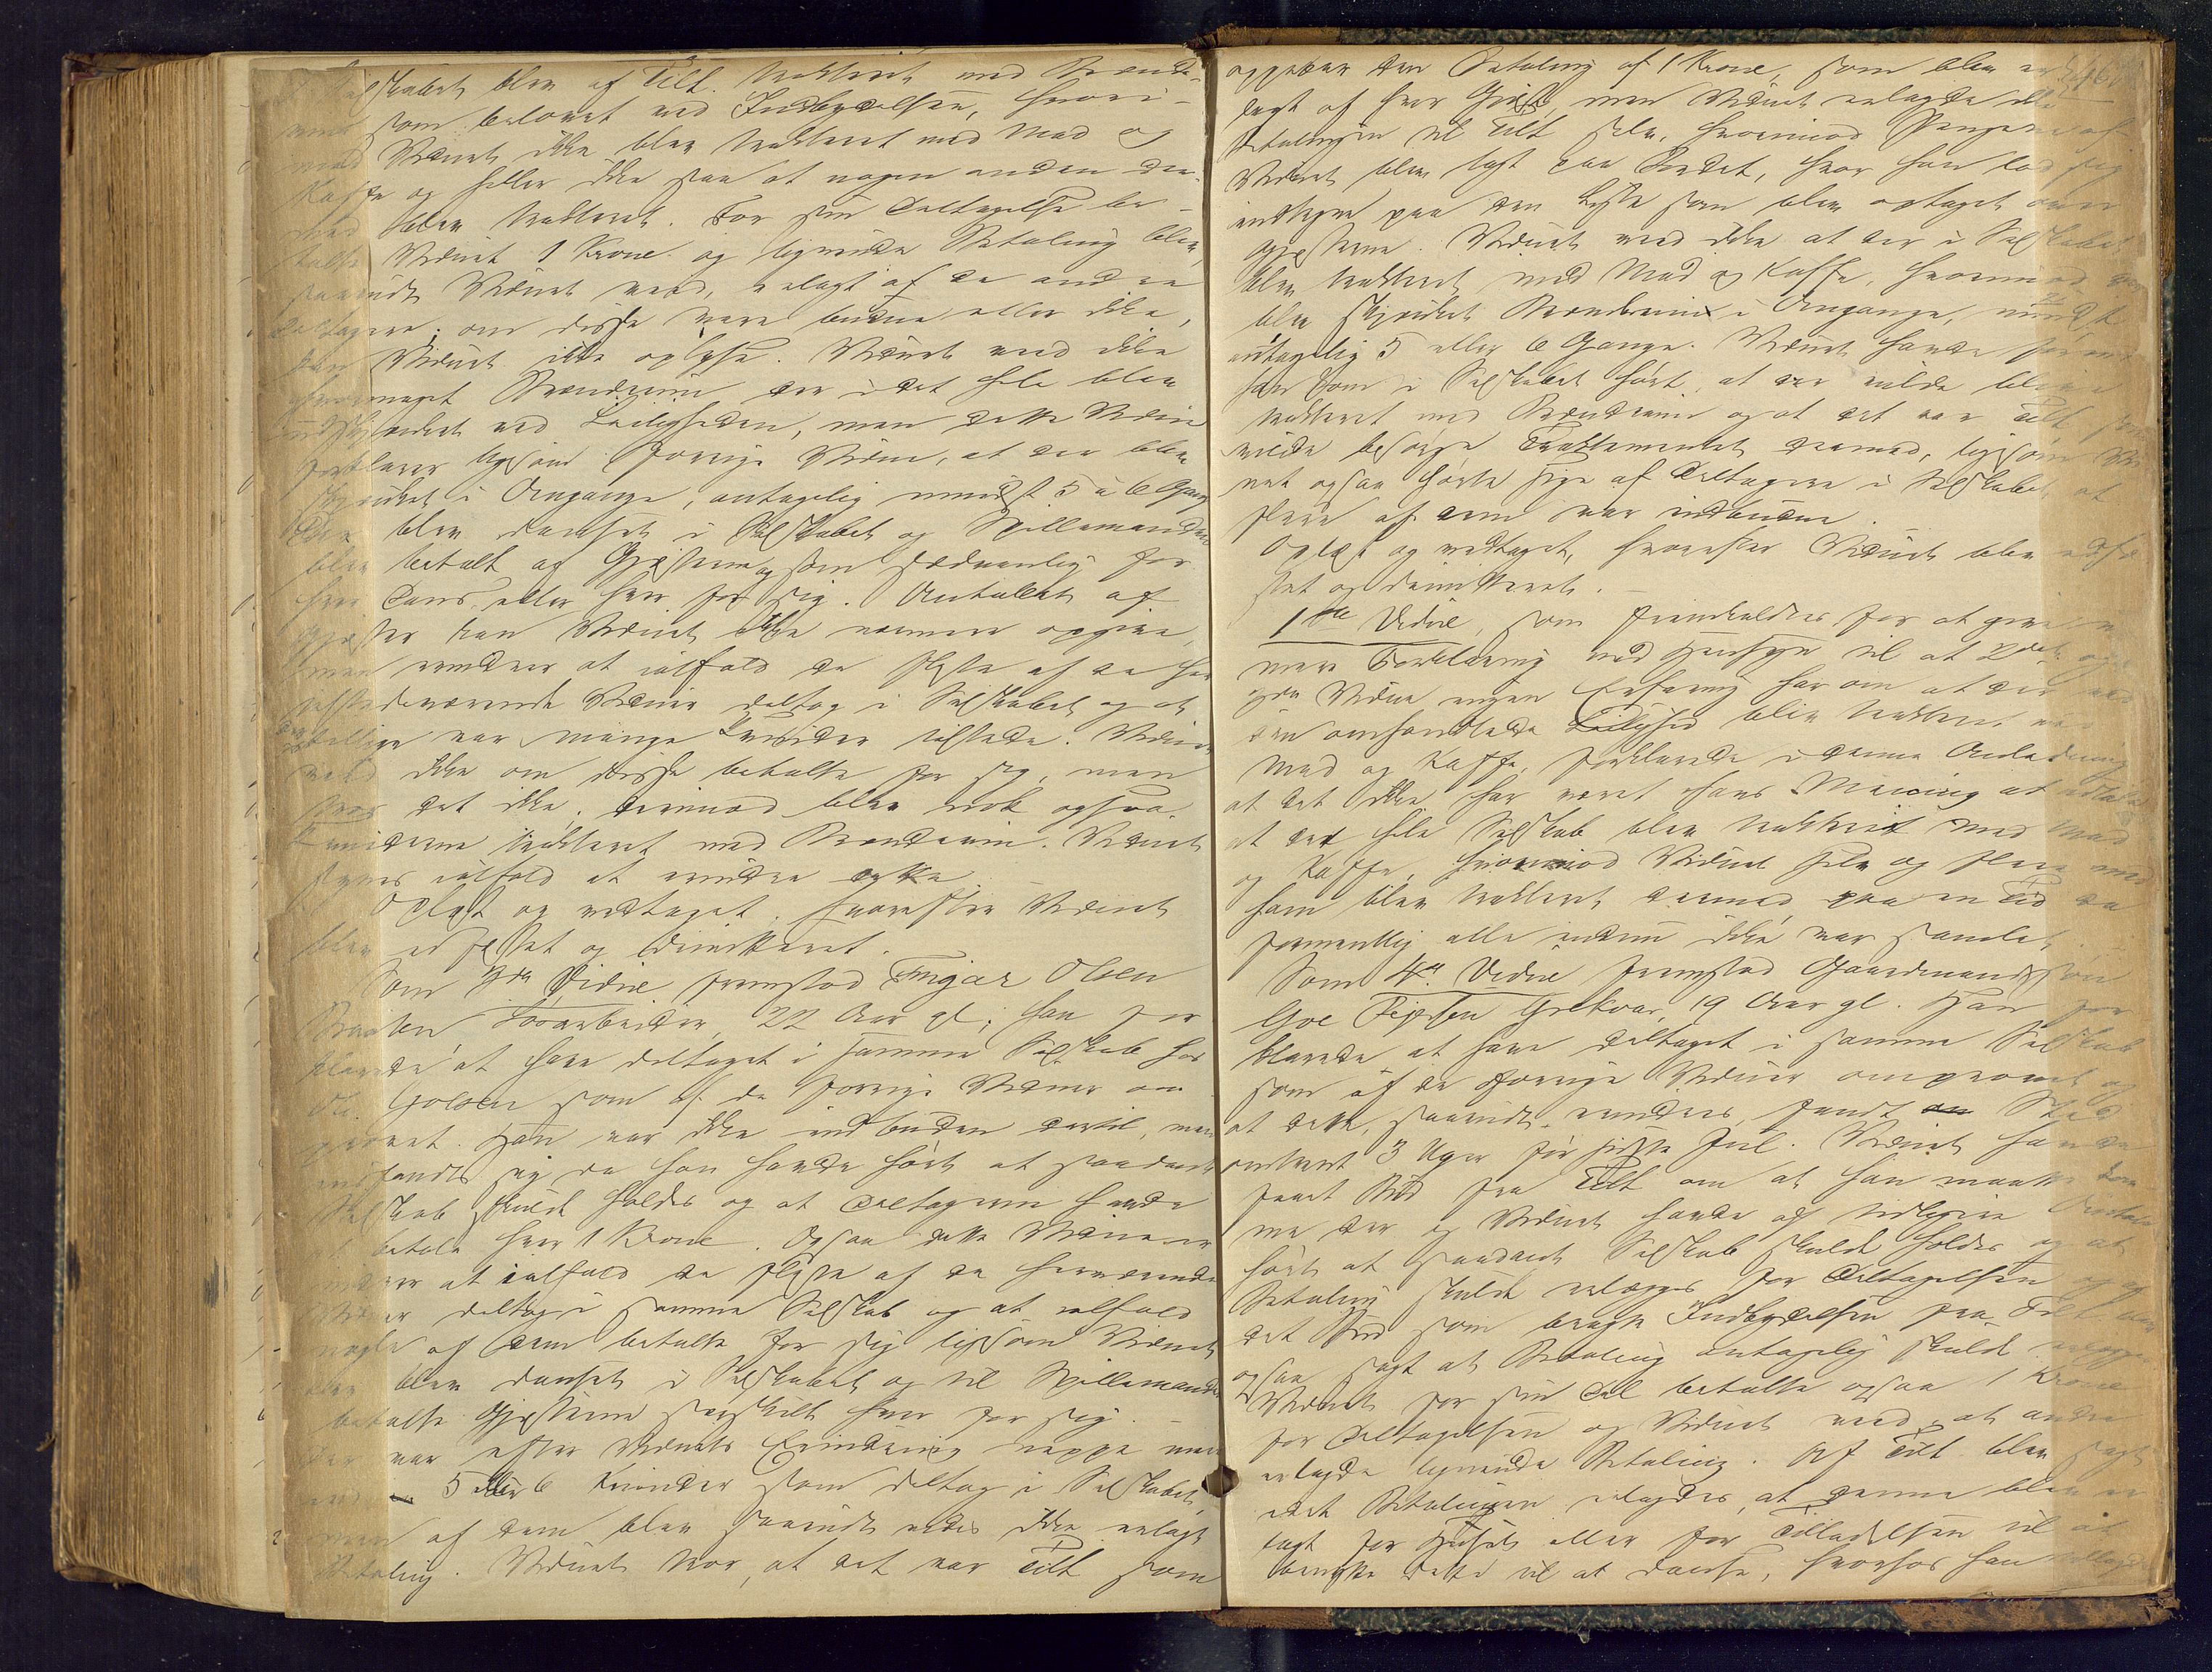 Selskabet blev af Tilt. trakteret med Brænde-
viin som belovet ved Indbydelsen, hvori-
mod Vidnet ikke blev trakteret med Mad og
Kaffe og heller ikke saa at nogen anden der-
med blev trakteret. For sin Deltagelse be-
talte Vidnet 1 Krone og lignende Betaling blev,
saavidt Vidnet veed, erlagt af de andre
Deltagere; om disse vare budne eller ikke,
kan Vidnet ikke oplyse. Vidnet veed ikke
hvormeget Brændeviin der i det hele blev
udskjænket ved Leiligheden, men dette Vidne
forklarer ligesom forrige Vidne, at der blev
skjænket i Omgange, antagelig mindst 5 à 6 Gange
Der blev danset i Selskabet og Spillemanden
blev betalt af Gjæsterne som sædvanlig for
hver Dans eller hver for sig. Antallet af
Gjæster kan Vidnet ikke nærmere opgive,
men mindes at ialfald de fleste af de her
tilstedeværende Vidner deltog i Selskabet og at
der tillige var mange Kvinder tilstede. Vidnet
veed ikke om disse betalte for sig, men
tror det ikke, derimod blev nok ogsaa
Kvinderne trakteret med Brændeviin. Vidnet
synes ialfald at mindes dette.
Oplæst og vedtaget, hvorefter Vidnet
blev edfæstet og dimitteret.
Som 3die Vidne fremstod Ingar Olsen
Braaten Løsarbeider, 22 Aar gl; han for
klarede at have deltaget i samme Selskab hos
Ole Goberg som af de forrige Vidner om
prøvet. Han var ikke indbuden dertil, men
indfandt sig da han havde hørt at saadant
Selskab skulde holdes og at Deltagerne havde
at betale hver 1 Krone. Ogsaa dette Vidne er
indrer at ialfald de fleste af de herværende
Vidner deltog i samme Selskab og at ialfald
nogle af dem betalte for sig ligesom Vidnet
Der blev danset i Selskabet og til Spillemanden
betalte Gjæsterne særskilt hver for sig. –
Der var efter Vidnets Erindring neppe mere
end 5 eller 6 Kvinder som deltog i Selskabet,
men af dem blev saavidt vides ikke erlagt
Betaling. Vidnet tror, at det var Tilt som
oppebar den Betaling af 1 Krone, som blev er-
lagt af hver Gjæst, men Vidnet erlagde ikke
Betalingen til Tilt selv, hvorimod Pengene af
Vidnet blev lagt paa Bordet, hvor han lod sig
indtegne paa den Liste som blev optaget over
Gjæsterne. Vidnet veed ikke at der i Selskabet
blev trakteret med Mad og Kaffe, hvorimod der
blev skjænket Brændeviin i Omgange, mindst
antagelig 5 eller 6 Gange. Vidnet havde før end
han kom i Selskabet hørt, at der vilde blive
trakteret med Brændeviin og at det var Tilt som
vilde besørge Traktementet dermed, ligesom Vid-
net ogsaa hørte sige af Deltagere i Selskabet at
flere af dem var indbudne.
Oplæst og vedtaget, hvorefter Vidnet blev edfæ
stet og dimitteret. –
1ste Vidne, som fremkaldtes for at give nær-
mere Forklaring med Hensyn til at 2det og
3die Vidne ingen Erfaring har om at der ved
den omhandlede Leilighed blev trakteret med
Mad og Kaffe, forklarede i denne Anledning
at det ikke har været hans Mening at udtale
at det hele Selskab blev trakteret med Mad
og Kaffe, hvorimod Vidnet selv og flere med
ham blev trakteret dermed paa en Tid da
formentlig alle endnu ikke var samlet. –
Som 4de Vidne fremstod Gaardmandssøn
Goe Pejersen Grekvar, 19 Aar gl. Han for
klarede at have deltaget i samme Selskab
som af de forrige Vidner omprøvet og
at dette, saavidt mindes, fandt Sted
omtrent 3 Uger før sidste Jul. Vidnet havde
faaet Bud fra Tilt om at han maatte kom
me der og Vidnet havde af tidligere
hørt at saadant Selskab skulde holdes og at
Betaling skulde erlægges for Deltagelsen og af
det Bud som bragte Indbydelsen fra Tilt blev
ogsaa sagt at Betaling antagelig skulde erlægges
Vidnet for sin Del betalte ogsaa 1 Krone
for Deltagelsen og Vidnet veed, at andre
erlagde lignende Betaling. Af Tilt blev sagt
idet Betalingen erlagdes, at denne blev er-
lagt for Huset eller for Tilladelsen til at
benytte dette til at danse, hvorfor han